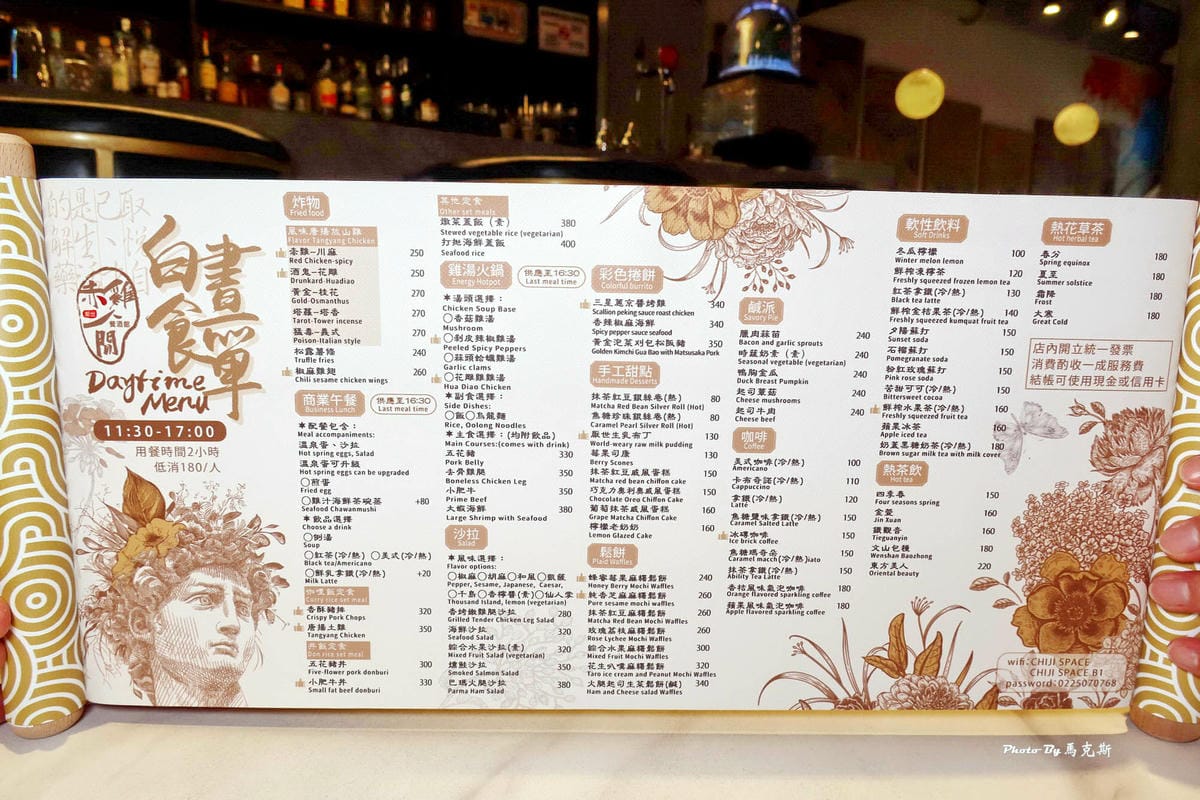 白晝食單
赤雞人間
養酒館
Daytime
Menu
11:30-17:00
用餐時間2小時
低消180/人
炸物
Fried food
風味唐揚放山雞
Flavor Tangyang Chicken
赤雞—川麻 250
Red Chicken-spicy
酒鬼—花雕 250
Drunkard-Huadiao
黃金—桂花 270
Gold-Osmanthus
塔羅—塔香 270
Tarot-Tower incense
猛毒—義式 270
Poison-Italian style
松露薯條 240
Truffle fries
椒麻雞翅 260
Chili sesame chicken wings
商業午餐
Business Lunch
供應至16:30
Last meal time
＊配餐包含：
Meal accompaniments:
溫泉蛋、沙拉
Hot spring eggs, Salad
溫泉蛋可升級
Hot spring eggs can be upgraded
○煎蛋
Fried egg
○雞汁海鮮茶碗蒸 +80
Seafood Chawanmushi
＊飲品選擇
Choose a drink
○例湯
Soup
○紅茶(冷/熱) ○美式(冷/熱)
Black tea/Americano
○鮮乳拿鐵(冷/熱) +20
Milk Latte
咖哩飯定食
Curry rice set meal
香酥豬排 320
Crispy Pork Chops
唐揚土雞 350
Tangyang Chicken
丼飯定食
Don rice set meal
五花豬丼 300
Five-flower pork donburi
小肥牛丼 330
Small fat beef donburi
其他定食
Other set meals
燉菜蓋飯（素） 380
Stewed vegetable rice (vegetarian)
打拋海鮮蓋飯 400
Seafood rice
雞湯火鍋
Energy Hotpot
供應至16:30
Last meal time
＊湯頭選擇：
Chicken Soup Base
○香菇雞湯
Mushroom
○剝皮辣椒雞湯
Peeled Spicy Peppers
○蒜頭蛤蠣雞湯
Garlic clams
○花雕雞雞湯
Hua Diao Chicken
＊副食選擇：
Side Dishes:
○飯○烏龍麵
Rice, Oolong Noodles
＊主食選擇：(均附飲品)
Main Courses:(comes with drink)
五花豬 330
Pork Belly
去骨雞腿 350
Boneless Chicken Leg
小肥牛 350
Prime Beef
大蝦海鮮 380
Large Shrimp with Seafood
沙拉
Salad
＊風味選擇：
Flavor options:
○椒麻○胡麻○和風○凱薩
Pepper, Sesame, Japanese, Caesar,
○千島○香檸醬(素)○仙人掌
Thousand Island, lemon (vegetarian)
香烤嫩雞腿沙拉 280
Grilled Tender Chicken Leg Salad
海鮮沙拉 320
Seafood Salad
綜合水果沙拉(素) 320
Mixed Fruit Salad (vegetarian)
燻鮭沙拉 350
Smoked Salmon Salad
巴瑪火腿沙拉 380
Parma Ham Salad
彩色捲餅
Colorful burrito
三星蔥京醬烤雞 340
Scallion peking sauce roast chicken
香辣椒麻海鮮 340
Spicy pepper sauce seafood
黃金泡菜刈包松阪豬 350
Golden Kimchi Gua Bao with Matsusaka Pork
手工甜點
Handmade Desserts
抹茶紅豆銀絲卷(熱) 80
Matcha Red Bean Silver Roll (Hot)
焦糖珍珠銀絲卷(熱) 80
Caramel Pearl Silver Roll (Hot)
厭世生乳布丁 130
World-weary raw milk pudding
莓果司康 130
Berry Scones
抹茶紅豆戚風蛋糕 150
Matcha red bean chiffon cake
巧克力奧利奧戚風蛋糕 150
Chocolate Oreo Chiffon Cake
葡萄抹茶戚風蛋糕 160
Grape Matcha Chiffon Cake
檸檬老奶奶 160
Lemon Glazed Cake
鬆餅
Plaid Waffles
蜂蜜莓果麻糬鬆餅 240
Honey Berry Mochi Waffles
純香芝麻麻糬鬆餅 260
Pure sesame mochi waffles
抹茶紅豆麻糬鬆餅 260
Matcha Red Bean Mochi Waffles
玫瑰荔枝麻糬鬆餅 260
Rose Lychee Mochi Waffles
綜合水果麻糬鬆餅 300
Mixed Fruit Mochi Waffles
花生叭噗麻糬鬆餅 320
Taro ice cream and Peanut Mochi Waffles
火腿起司生菜鬆餅(鹹) 340
Ham and Cheese salad Waffles
鹹派
Savory Pie
臘肉蒜苗 240
Bacon and garlic sprouts
時蔬奶素（素） 240
Seasonal vegetable (vegetarian)
鴨胸金瓜 240
Duck Breast Pumpkin
起司蕈菇 240
Cheese mushrooms
起司牛肉 240
Cheese beef
咖啡
Coffee
美式咖啡(冷/熱) 100
Americano
卡布奇諾(冷/熱) 110
Cappuccino
拿鐵(冷/熱) 120
Latte
焦糖鹽味拿鐵(冷/熱) 150
Caramel Salted Latte
冰磚咖啡 150
Ice brick coffee
焦糖瑪奇朵 150
Caramel macch(冷/熱)iato
抹茶拿鐵(冷/熱) 150
Ability Tea Latte
香桔風味氣泡咖啡 180
Orange flavored sparkling coffee
蘋果風味氣泡咖啡 180
Apple flavored sparkling coffee
軟性飲料
Soft Drinks
冬瓜檸檬 100
Winter melon lemon
鮮榨凍檸茶 120
Freshly squeezed frozen lemon tea
紅茶拿鐵(冷/熱) 130
Black tea latte
鮮榨金桔果茶(冷/熱) 140
Freshly squeezed kumquat fruit tea
夕陽蘇打 150
Sunset soda
石榴蘇打 150
Pomegranate soda
粉紅玫瑰蘇打 150
Pink rose soda
苦甜可可(冷/熱) 150
Bittersweet cocoa
鮮榨水果茶(冷/熱) 160
Freshly squeezed fruit tea
蘋果冰茶 160
Apple iced tea
奶蓋黑糖奶茶(冷/熱) 180
Brown sugar milk tea with milk cover
熱茶飲
Hot tea
四季春 150
Four seasons spring
金萱 160
Jin Xuan
鐵觀音 160
Tieguanyin
文山包種 180
Wenshan Baozhong
東方美人 220
Oriental beauty
熱花草茶
Hot herbal tea
春分 180
Spring equinox
夏至 180
Summer solstice
霜降 180
Frost
大寒 180
Great Cold
店內開立統一發票
消費酌收一成服務費
結帳可使用現金或信用卡
wifi:CHIJI SPACE
CHIJI SPACE B1
password:0225070768
Photo By 馬克斯